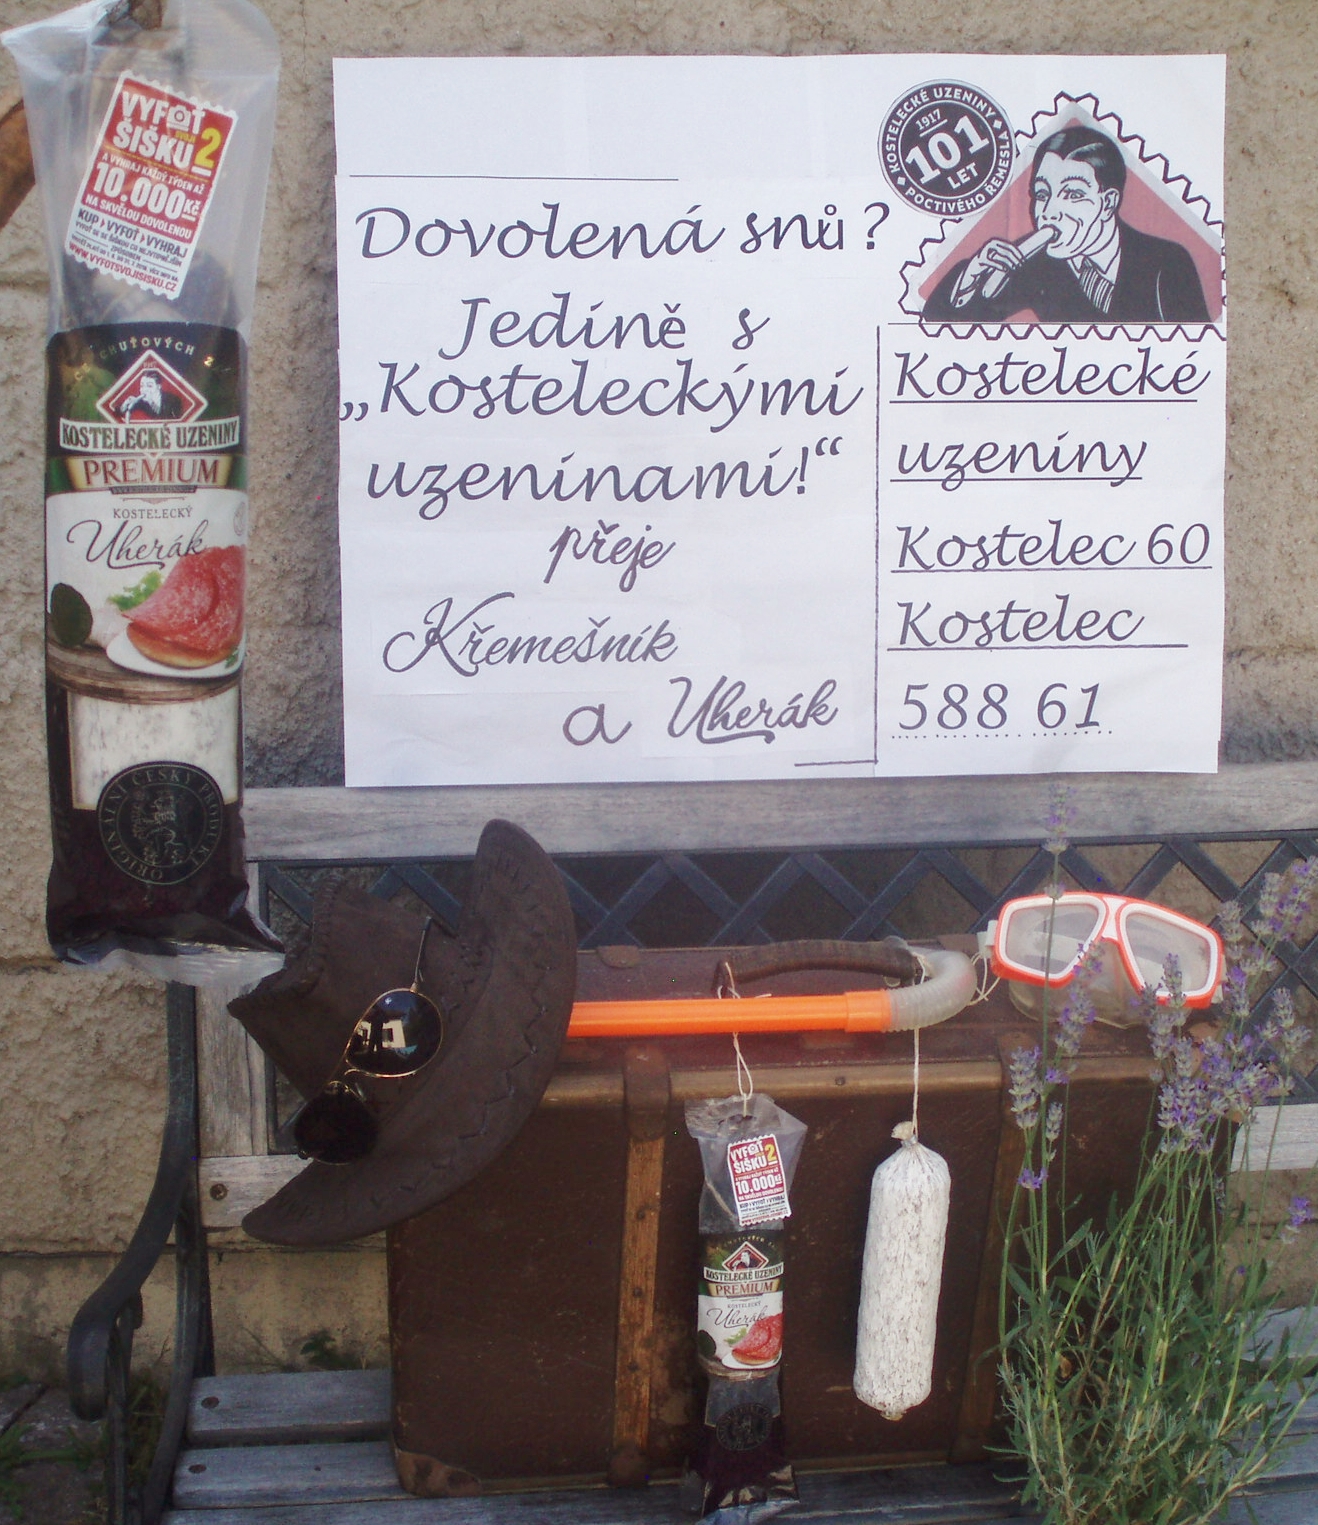 VYFOŤ
SVOJI
ŠIŠKU 2
A VYHRAJ KAŽDÝ TÝDEN AŽ
10.000 Kč
NA SKVĚLOU DOVOLENOU
KUP > VYFOŤ > VYHRAJ
WWW.VYFOTSVOJISISKU.CZ
KOSTELECKÉ UZENINY
PREMIUM
KOSTELECKÝ
Uherák
ORIGINÁLNÍ ČESKÝ PRODUKT
KOSTELECKÉ UZENINY
1917
101
LET
POCTIVÉHO ŘEMESLA
Dovolená snů?
Jedině s
„Kosteleckými
uzeninami!“
přeje
Křemešník
a Uherák
Kostelecké
uzeniny
Kostelec 60
Kostelec
588 61
VYFOŤ
ŠIŠKU 2
10.000 Kč
KUP > VYFOŤ > VYHRAJ
KOSTELECKÉ UZENINY
PREMIUM
KOSTELECKÝ
Uherák